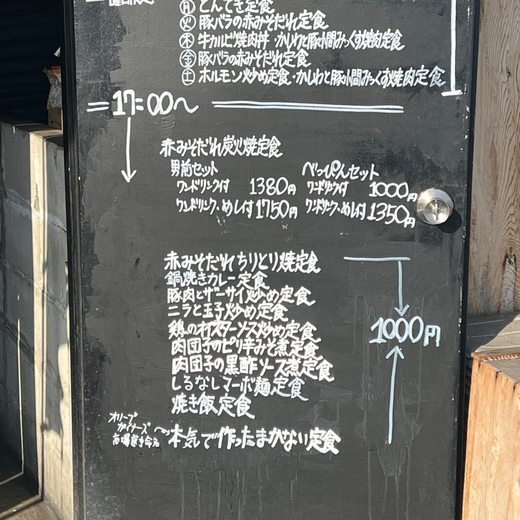 ㊊とんてき定食
㊋豚バラの赤みそだれ定食
㊍牛カルビ焼肉丼・かしわと豚小間みっくす焼肉定食
㊎豚バラの赤みそだれ定食
㊏ホルモン炒め定食・かしわと豚小間みっくす焼肉定食
17:00〜
赤みそだれ炭火焼定食
男前セット
ワンドリンク付 1380円
ワンドリンク、めし付 1750円
べっぴんセット
ワンドリンク付 1000円
ワンドリンク、めし付 1350円
赤みそだれちりとり焼定食
鍋焼きカレー定食
豚肉とザーサイ炒め定食
ニラと玉子炒め定食
鶏のオイスターソース炒め定食
肉団子のピリ辛みそ煮定食
肉団子の黒酢ソース煮定食
しるなしマーボ麺定食
焼き飯定食
1000円
オリーブ
ガイナーズ
本気で作ったまかない定食